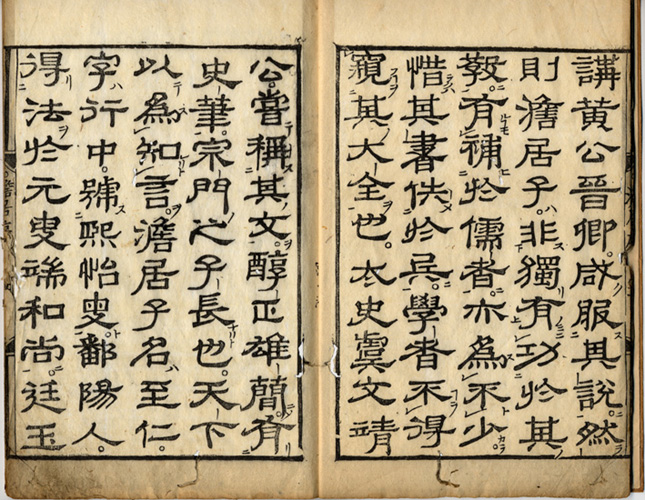 講黄公晉卿。咸服其說。然
則澹居子。非獨有功於其
敎。有補於儒者。亦爲不少。
惜其書佚於兵。學者不得
窺其大全也。太史虞文靖
公。嘗稱其文。醇正雄簡。有
史筆。宗門之子長也。天下
以爲知言。澹居子名至仁。
字行中。號熙怡叟。鄱陽人。
得法於元叟端和尚。廷玉